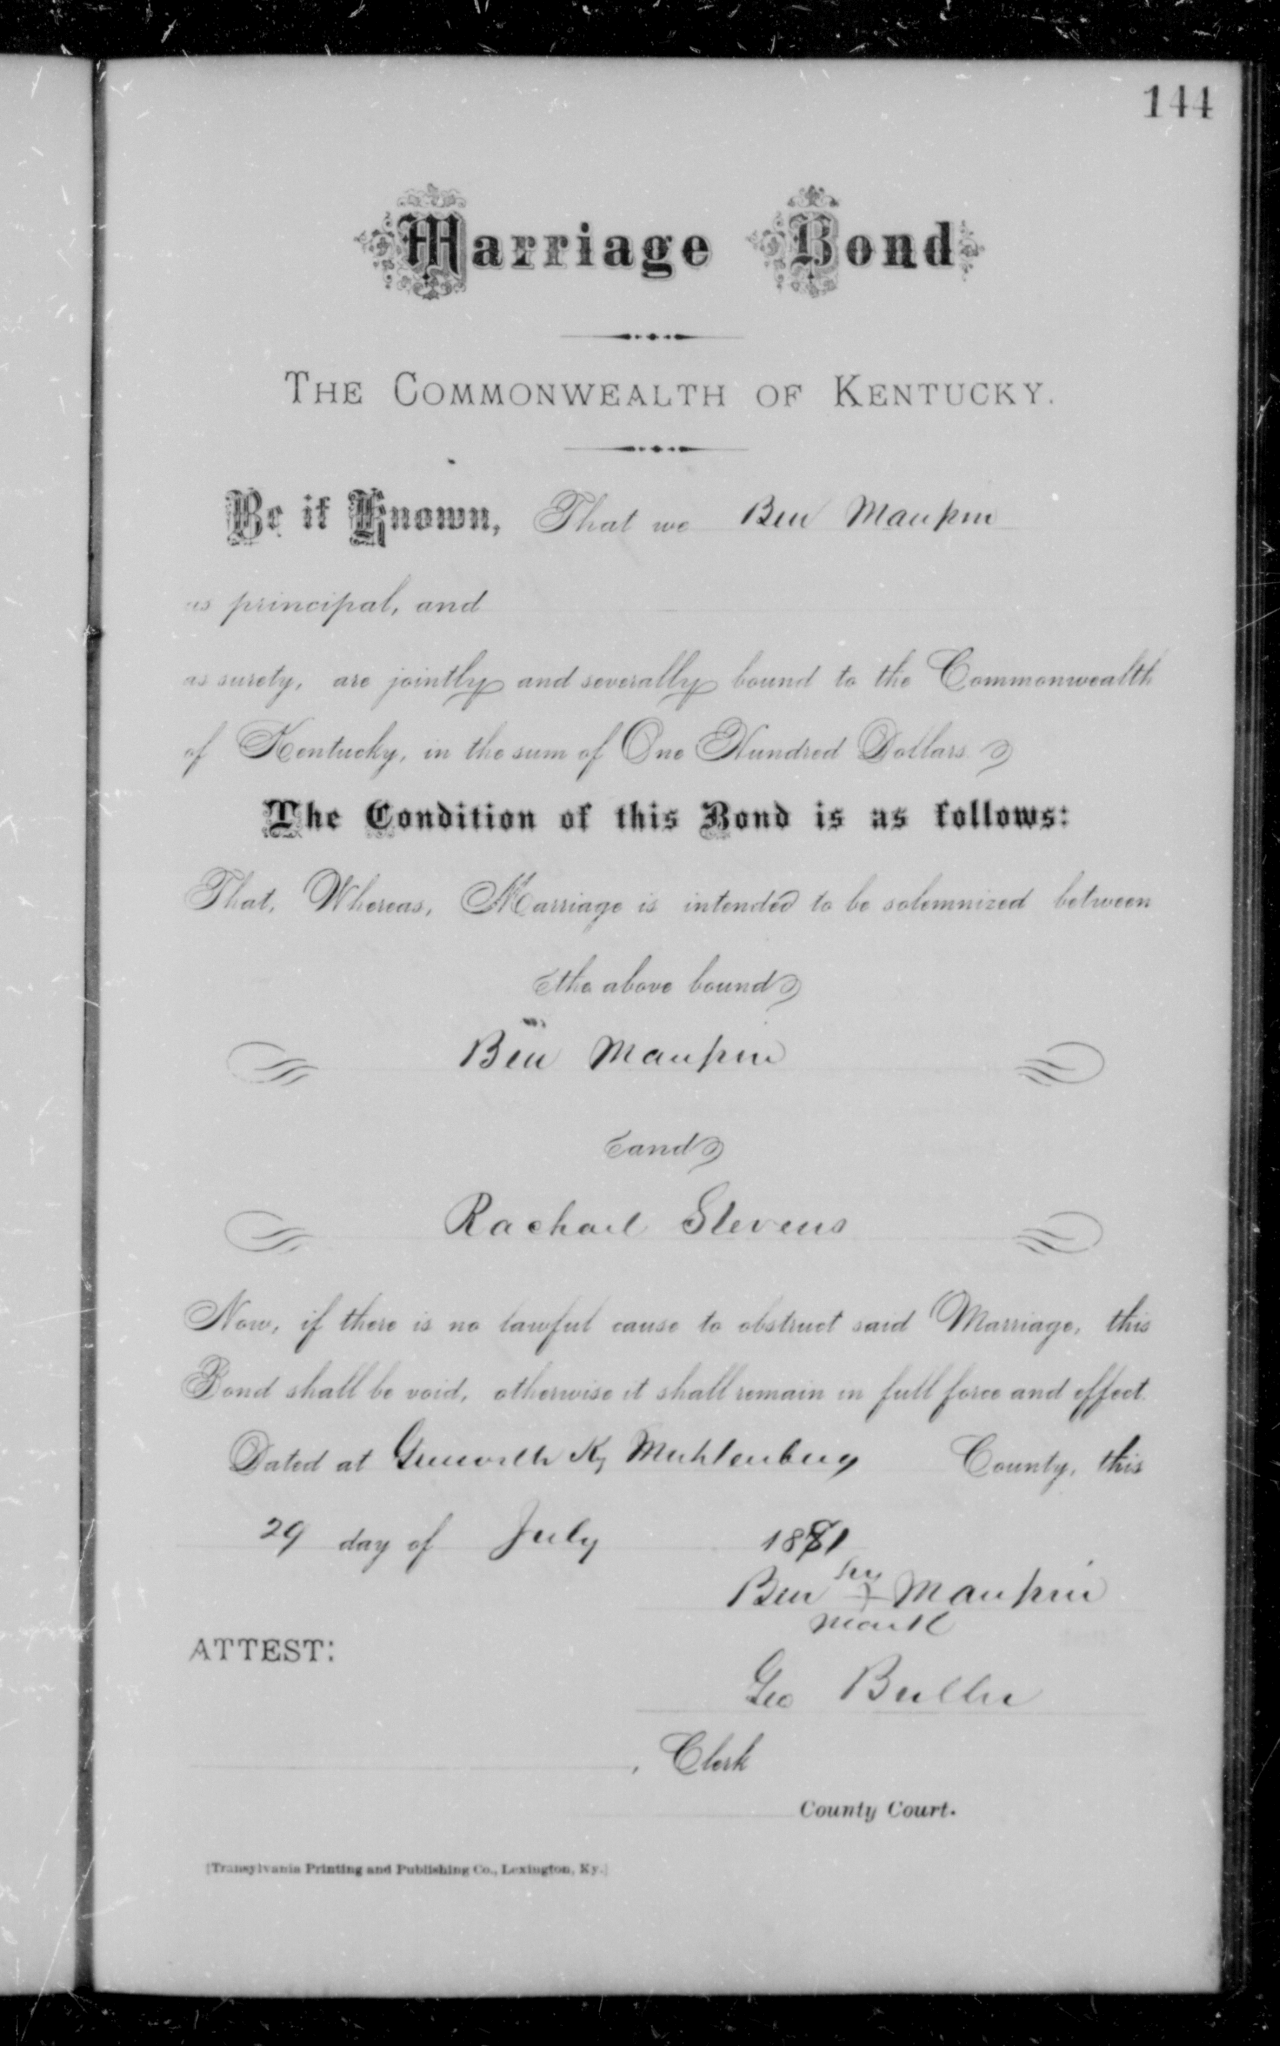 144
Marriage Bond
THE COMMONWEALTH OF KENTUCKY.
Be it Known, That we Ben Maupin
as principal, and
as surety, are jointly and severally bound to the Commonwealth
of Kentucky, in the sum of One Hundred Dollars.
The Condition of this Bond is as follows:
That, Whereas, Marriage is intended to be solemnized between
the above bound
Ben Maupin
and
Rachael Stevens
Now, if there is no lawful cause to obstruct said Marriage, this
Bond shall be void, otherwise it shall remain in full force and effect.
Dated at Greenville Ky Muhlenburg County, this
29 day of July 1881
his
Ben + Maupin
mark
ATTEST:
Geo
, Clerk
County Court.
[Transylvania Printing and Publishing Co., Lexington, Ky.]